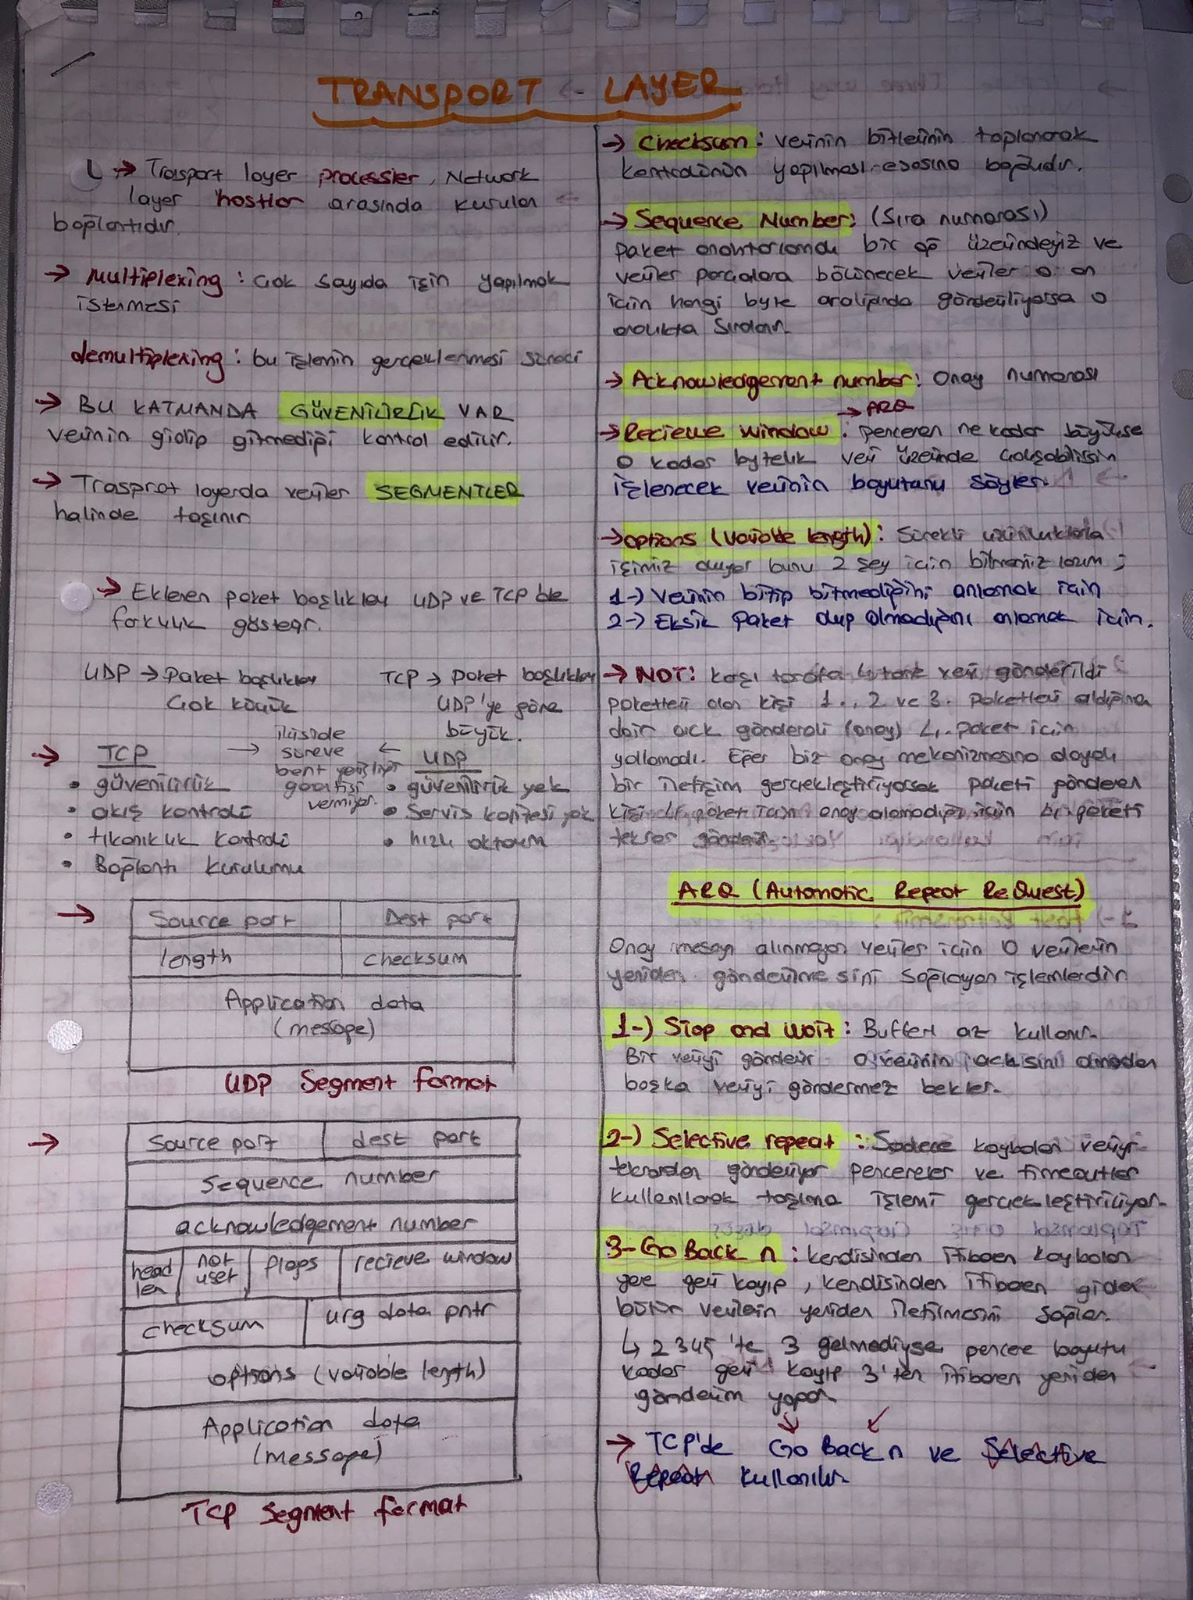 TRANSPORT - LAYER
→ Trasport layer processler, Network
layer hostlar arasında kurulan
bağlantıdır.
→ multiplexing : Çok sayıda işin yapılmak
istenmesi
demultiplexing : bu işlemin gerçeklenmesi süreci
→ BU KATMANDA GÜVENİLİRLİK VAR
verinin gidip gitmediği kontrol edilir.
→ Trasprot layerda veriler SEGMENTLER
halinde taşınır
→ Eklenen paket başlıkları UDP ve TCP'de
farklılık gösterir.
UDP → Paket başlıkları
Çok küçük
TCP → Paket başlıkları
UDP'ye göre
büyük.
→ TCP
• güvenilirlik
• akış kontrolü
• tıkanıklık kontrolü
• Bağlantı kurulumu
→ ikiside ←
süreve
garantisi
vermiyor.
UDP
• güvenilirlik yok
• Servis kalitesi yok
• hızlı aktarım
→ Source port Dest port
length checksum
Application data
(message)
UDP Segment format
→ Source port dest port
sequence number
acknowledgement number
head len not uset flags recieve window
checksum urg data pntr
options (variable length)
Application data
(message)
TCP Segment format
→ Checksum : verinin bitlerinin toplanarak
kontrolünün yapılması esasına bağlıdır.
→ Sequence Number : (Sıra numarası)
paket anahtarlamalı bir ağ üzerindeyiz ve
veriler parçalara bölünecek veriler o an
için hangi byte aralığında gönderiliyorsa o
aralıkta sıralanır.
→ Acknowledgement number : Onay numarası
→ ARQ
→ Recieve window : pencere ne kadar büyükse
o kadar bytelık veri üzerinde çalışabilirsin
işlenecek verinin boyutunu söyler.
→ options (variable length) : Sürekli uzunluklarla
işimiz oluyor bunu 2 şey için bilmemiz lazım ;
1-) Verinin bitip bitmediğini anlamak için
2-) Eksik Paket olup olmadığını anlamak için.
→ NOT: Karşı tarafa 4 tane veri gönderildi
paketleri alan kişi 1., 2 ve 3. Paketleri aldığına
dair ack gönderdi (onay) 4. paket için
yollamadı. Eğer biz onay mekanizmasına dayalı
bir iletişim gerçekleştiriyorsak paketi gönderen
kişi 4. paket için onay alamadığı için bu paketi
tekrar gönderir.
ARQ (Automatic Repeat ReQuest)
Onay mesajı alınmayan veriler için o verilerin
yeniden gönderilmesini sağlayan işlemlerdir
1-) Stop and wait : Bufferı az kullanır.
Bir veriyi gönderir o verinin ackısını almadan
başka veriyi göndermez bekler.
2-) Selective repeat : Sadece kaybolan veriyi
tekrardan gönderiyor pencereler ve timeoutlar
kullanılarak taşıma işlemi gerçekleştiriliyor.
3- Go Back n : kendisinden itibaren kaybolan
yere geri kayıp, kendisinden itibaren giden
bütün verilerin yeniden iletilmesini sağlar.
↳ 2 3 4 5 'te 3 gelmediyse pencere boyutu
kadar geri kayıp 3'ten itibaren yeniden
gönderim yapar.
→ TCP'de Go Back n ve Selective
Repeat kullanılır.